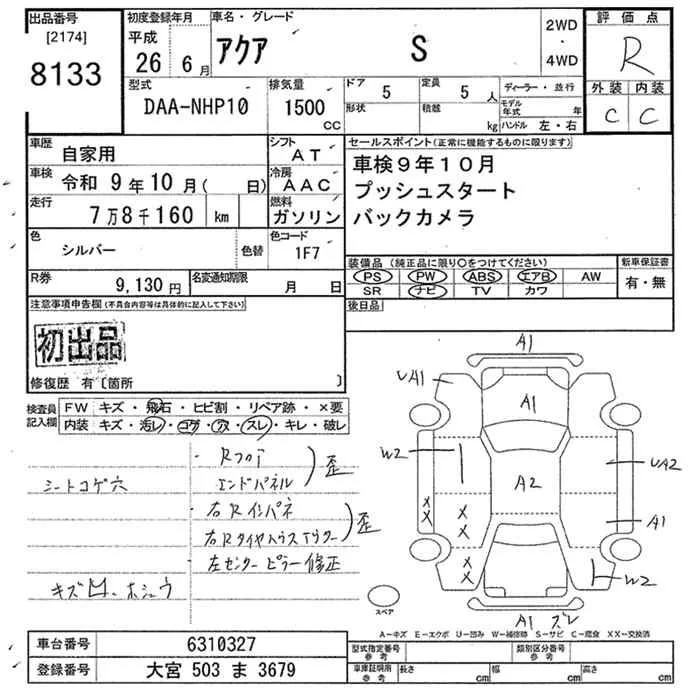 出品番号
[2174]
8133
初度登録年月
平成
26 6月
車名・グレード
アクア S
2WD
・
4WD
評価点
R
外装 内装
C C
型式
DAA-NHP10
排気量
1500
cc
ドア 5
定員 5 人
形状
積載 kg
ディーラー・並行
モデル年式 年
ハンドル 左・右
車歴
自家用
シフト
AT
車検 令和 9年10月( 日)
冷房
AAC
走行
7万8千160 km
燃料
ガソリン
色
シルバー
色替
色コード
1F7
R券
9,130円
名変通知期限
月 日
セールスポイント(正常に機能するものに限ります)
車検9年10月
プッシュスタート
バックカメラ
装備品 (純正品に限り○をつけてください)
PS PW ABS エアB AW
SR ナビ TV カワ
新車保証書
有・無
後日品
注意事項申告欄(不具合内容等は具体的に記入して下さい)
初出品
修復歴 有〔箇所 〕
検査員記入欄
FW キズ・飛石・ヒビ割・リペア跡・×要
内装 キズ・汚レ・コゲ・穴・スレ・キレ・破レ
シートコゲ穴
エンドパネル
歪
歪
左センターピラー修正
A1
UA1
A1
W2
A2
UA2
A1
W2
A1 ズレ
スペア
A-キズ E-エクボ U-凹み W-補修跡 S-サビ C-腐食 XX-交換済
車台番号 6310327
登録番号 大宮 503 ま 3679
型式指定番号
参考
類別区分番号
参考
車庫証明用
参考
長さ cm
幅 cm
高さ cm